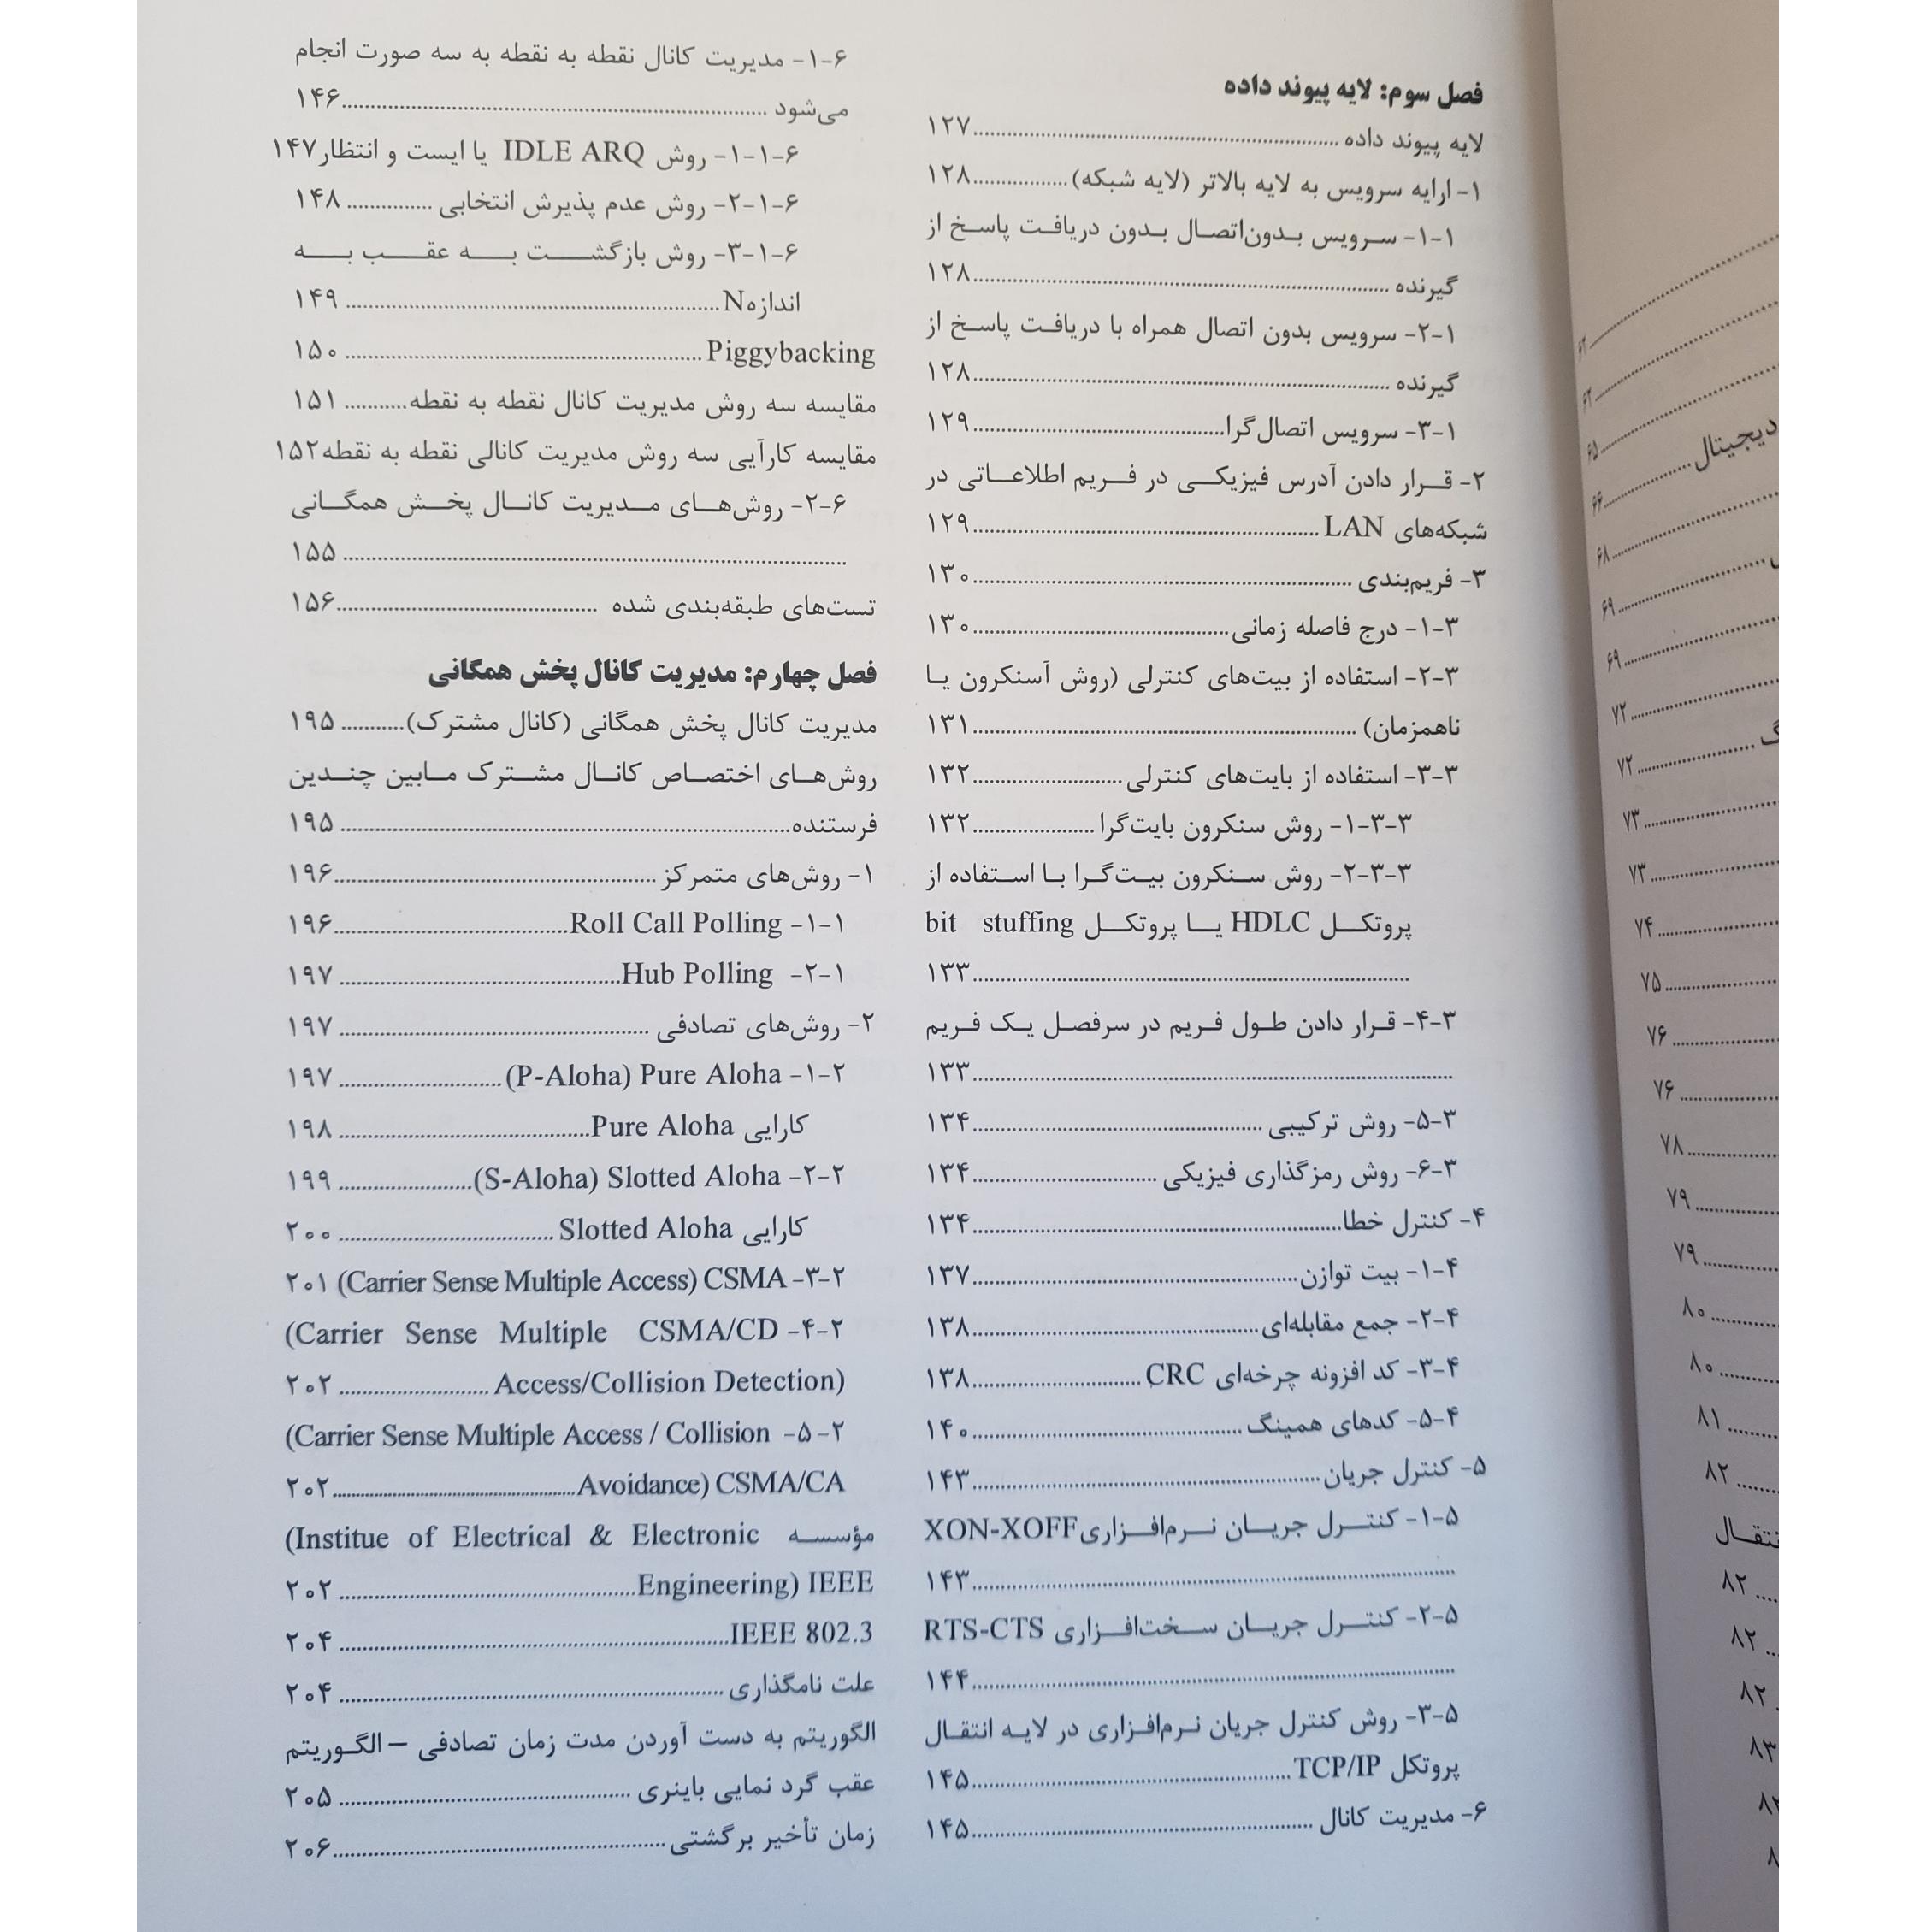 فصل سوم: لایه پیوند داده
لایه پیوند داده ........ ۱۲۷
۱- ارایه سرویس به لایه بالاتر (لایه شبکه) ........ ۱۲۸
۱-۱- سرویس بدون‌اتصال بدون دریافت پاسخ از
گیرنده ........ ۱۲۸
۲-۱- سرویس بدون اتصال همراه با دریافت پاسخ از
گیرنده ........ ۱۲۸
۳-۱- سرویس اتصال‌گرا ........ ۱۲۹
۲- قرار دادن آدرس فیزیکی در فریم اطلاعاتی در
شبکه‌های LAN ........ ۱۲۹
۳- فریم‌بندی ........ ۱۳۰
۱-۳- درج فاصله زمانی ........ ۱۳۰
۲-۳- استفاده از بیت‌های کنترلی (روش آسنکرون یا
ناهمزمان) ........ ۱۳۱
۳-۳- استفاده از بایت‌های کنترلی ........ ۱۳۲
۱-۳-۳- روش سنکرون بایت‌گرا ........ ۱۳۲
۲-۳-۳- روش سنکرون بیت‌گرا با استفاده از
پروتکل HDLC یا پروتکل bit stuffing
........ ۱۳۳
۴-۳- قرار دادن طول فریم در سرفصل یک فریم
........ ۱۳۳
۵-۳- روش ترکیبی ........ ۱۳۴
۶-۳- روش رمزگذاری فیزیکی ........ ۱۳۴
۴- کنترل خطا ........ ۱۳۴
۱-۴- بیت توازن ........ ۱۳۷
۲-۴- جمع مقابله‌ای ........ ۱۳۸
۳-۴- کد افزونه چرخه‌ای CRC ........ ۱۳۸
۵-۴- کدهای همینگ ........ ۱۴۰
۵- کنترل جریان ........ ۱۴۳
۱-۵- کنترل جریان نرم‌افزاری XON-XOFF
........ ۱۴۳
۲-۵- کنترل جریان سخت‌افزاری RTS-CTS
........ ۱۴۴
۳-۵- روش کنترل جریان نرم‌افزاری در لایه انتقال
پروتکل TCP/IP ........ ۱۴۵
۶- مدیریت کانال ........ ۱۴۵
۱-۶- مدیریت کانال نقطه به نقطه به سه صورت انجام
می‌شود ........ ۱۴۶
۱-۱-۶- روش IDLE ARQ یا ایست و انتظار ۱۴۷
۲-۱-۶- روش عدم پذیرش انتخابی ........ ۱۴۸
۳-۱-۶- روش بازگشت به عقب به
اندازه N ........ ۱۴۹
Piggybacking ........ ۱۵۰
مقایسه سه روش مدیریت کانال نقطه به نقطه ........ ۱۵۱
مقایسه کارآیی سه روش مدیریت کانالی نقطه به نقطه ۱۵۲
۲-۶- روش‌های مدیریت کانال پخش همگانی
........ ۱۵۵
تست‌های طبقه‌بندی شده ........ ۱۵۶
فصل چهارم: مدیریت کانال پخش همگانی
مدیریت کانال پخش همگانی (کانال مشترک) ........ ۱۹۵
روش‌های اختصاص کانال مشترک مابین چندین
فرستنده ........ ۱۹۵
۱- روش‌های متمرکز ........ ۱۹۶
۱-۱- Roll Call Polling ........ ۱۹۶
۲-۱- Hub Polling ........ ۱۹۷
۲- روش‌های تصادفی ........ ۱۹۷
۱-۲- Pure Aloha (P-Aloha) ........ ۱۹۷
کارایی Pure Aloha ........ ۱۹۸
۲-۲- Slotted Aloha (S-Aloha) ........ ۱۹۹
کارایی Slotted Aloha ........ ۲۰۰
۳-۲- CSMA (Carrier Sense Multiple Access) ۲۰۱
۴-۲- CSMA/CD (Carrier Sense Multiple
Access/Collision Detection) ........ ۲۰۲
۵-۲- (Carrier Sense Multiple Access / Collision
Avoidance) CSMA/CA ........ ۲۰۲
مؤسسه (Institue of Electrical & Electronic
Engineering) IEEE ........ ۲۰۲
IEEE 802.3 ........ ۲۰۴
علت نامگذاری ........ ۲۰۴
الگوریتم به دست آوردن مدت زمان تصادفی – الگوریتم
عقب گرد نمایی باینری ........ ۲۰۵
زمان تأخیر برگشتی ........ ۲۰۶
۶۲
۶۲
۶۵
دیجیتال ........ ۶۶
۶۸
۶۹
۶۹
۷۲
۷۲
۷۳
۷۳
۷۴
۷۵
۷۶
۷۶
۷۸
۷۹
۷۹
۸۰
۸۰
۸۱
۸۲
۸۲
۸۲
۸۲
۸۳